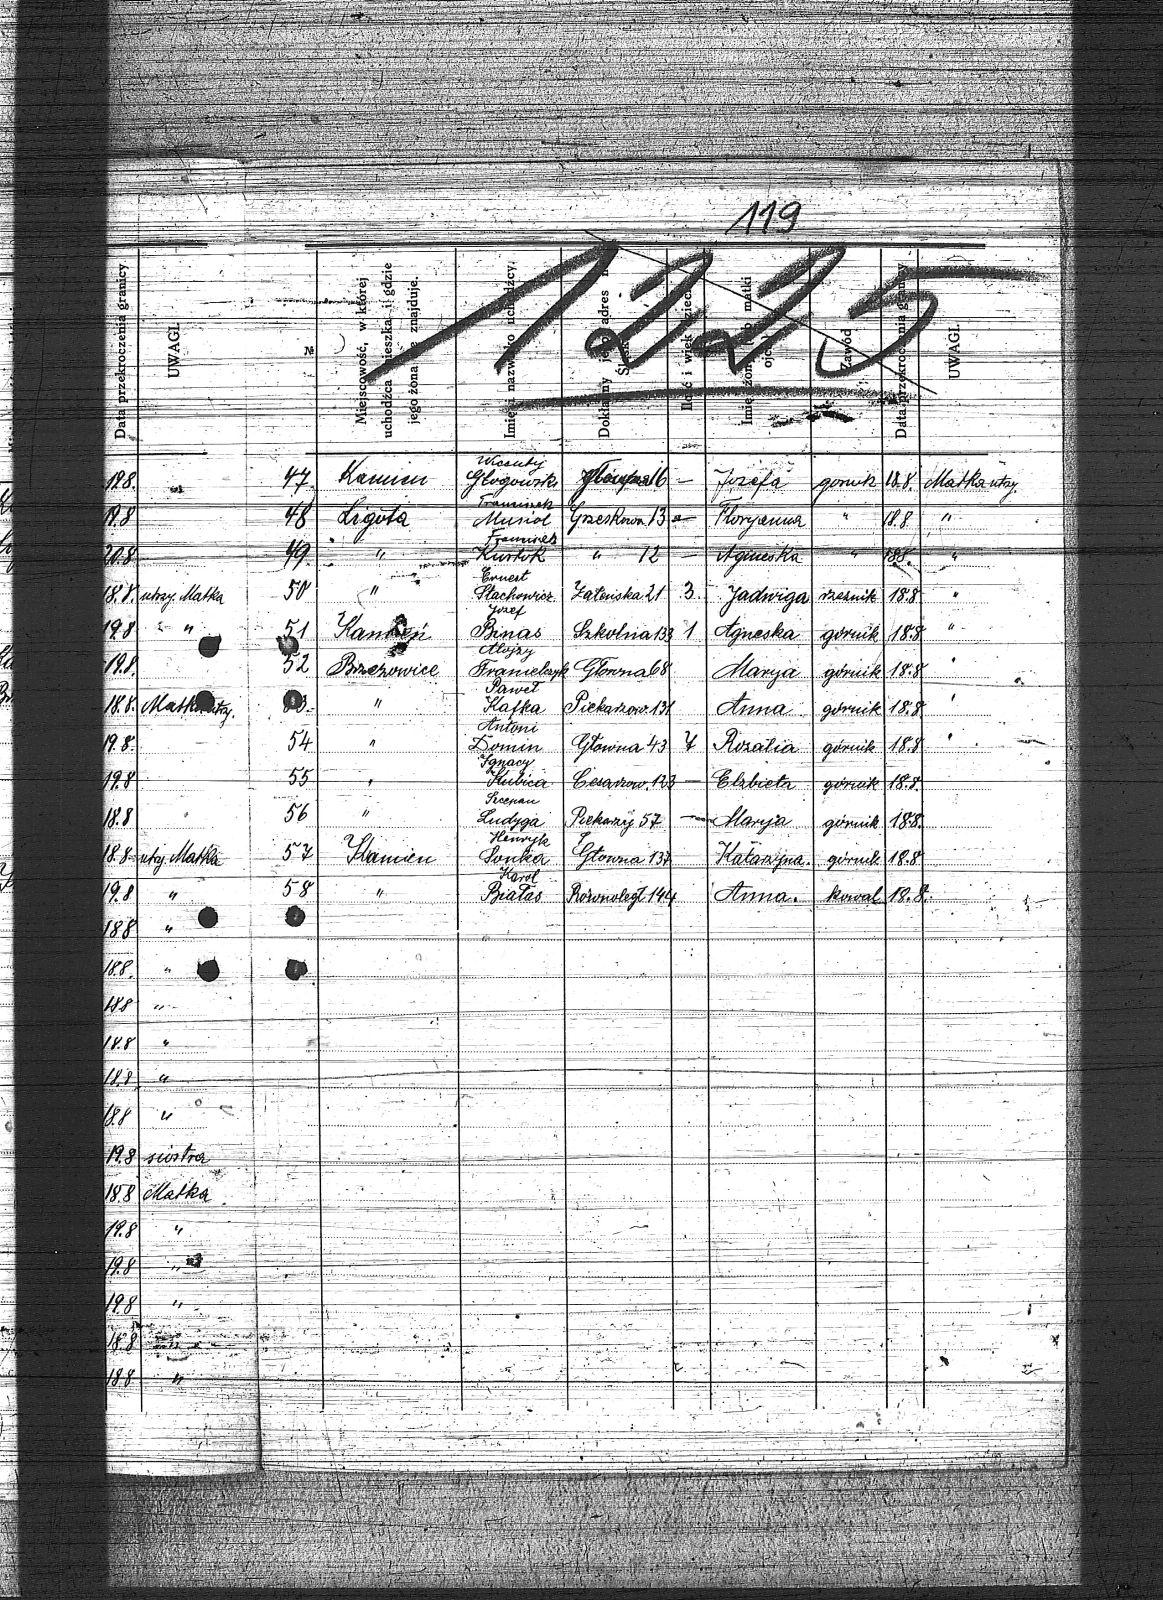 119
1225
Data przekroczenia granicy.
UWAGI.
№
Miejscowość, w której uchodźca mieszka i gdzie jego żona się znajduje.
Imię i nazwisko uchodźcy.
Dokładny jego adres
Ilość i wiek dzieci
Imię żony lub matki
Zawód
Data przekroczenia granicy
UWAGI.
19.8.
47. Kamien Wicenty Głogowski 16 — Jozefa gornik 18.8. Matka utrzy.
19.8
48 Ligota Franciszek Musiol Grzeskowa 13 — Floryanna " 18.8 "
20.8
49. " Kurtok " 12 — Agnieska " 18.8. "
18.8. utrzy. Matka
50 " Ernest Stachowicz Zatenska 21 3. Jadwiga rzeznik 18.8 "
19.8 "
51 Kamień Jozef Binas Szkolna 133 1 Agneska górnik 18.8. "
19.8.
52 Brzezowice Alojzy Franielczyk Głowna 68 Marya górnik 18.8 "
18.8. Matka utrzy.
" Paweł Kafka Piekarzow. 131 Anna górnik 18.8 "
19.8.
54 " Antoni Domin Głowna 43 7 Rozalia górnik 18.8 "
19.8
55 " Ignacy Kubica Cesarzow. 123 — Elzbieta górnik 18.8.
18.8
56 " Szczepan Ludyga Piekarzy 57 — Marya górnik 18.8.
18.8 utrzy. Matka
57 Kamien Henryk Sonka Głowna 137 Katarzyna. górnik 18.8
19.8 "
58 " Karol Białas Rownoległ 144 Anna. kowal 18.8.
18.8 "
18.8. "
18.8 "
18.8 "
18.8 "
18.8 "
19.8 siostra
18.8 Matka
19.8 "
19.8 "
19.8 "
18.8
18.8 "